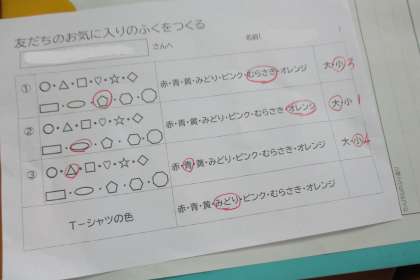 友だちのお気に入りのふくをつくる
さんへ
名前(
① ○・△・□・♡・☆・◇
赤・青・黄・みどり・ピンク・むらさき・オレンジ 大・小 3
② ○・△・□・♡・☆・◇
赤・青・黄・みどり・ピンク・むらさき・オレンジ 大・小 1
③ ○・△・□・♡・☆・◇
赤・青・黄・みどり・ピンク・むらさき・オレンジ 大・小 4
Tーシャツの色
赤・青・黄・みどり・ピンク・むらさき・オレンジ